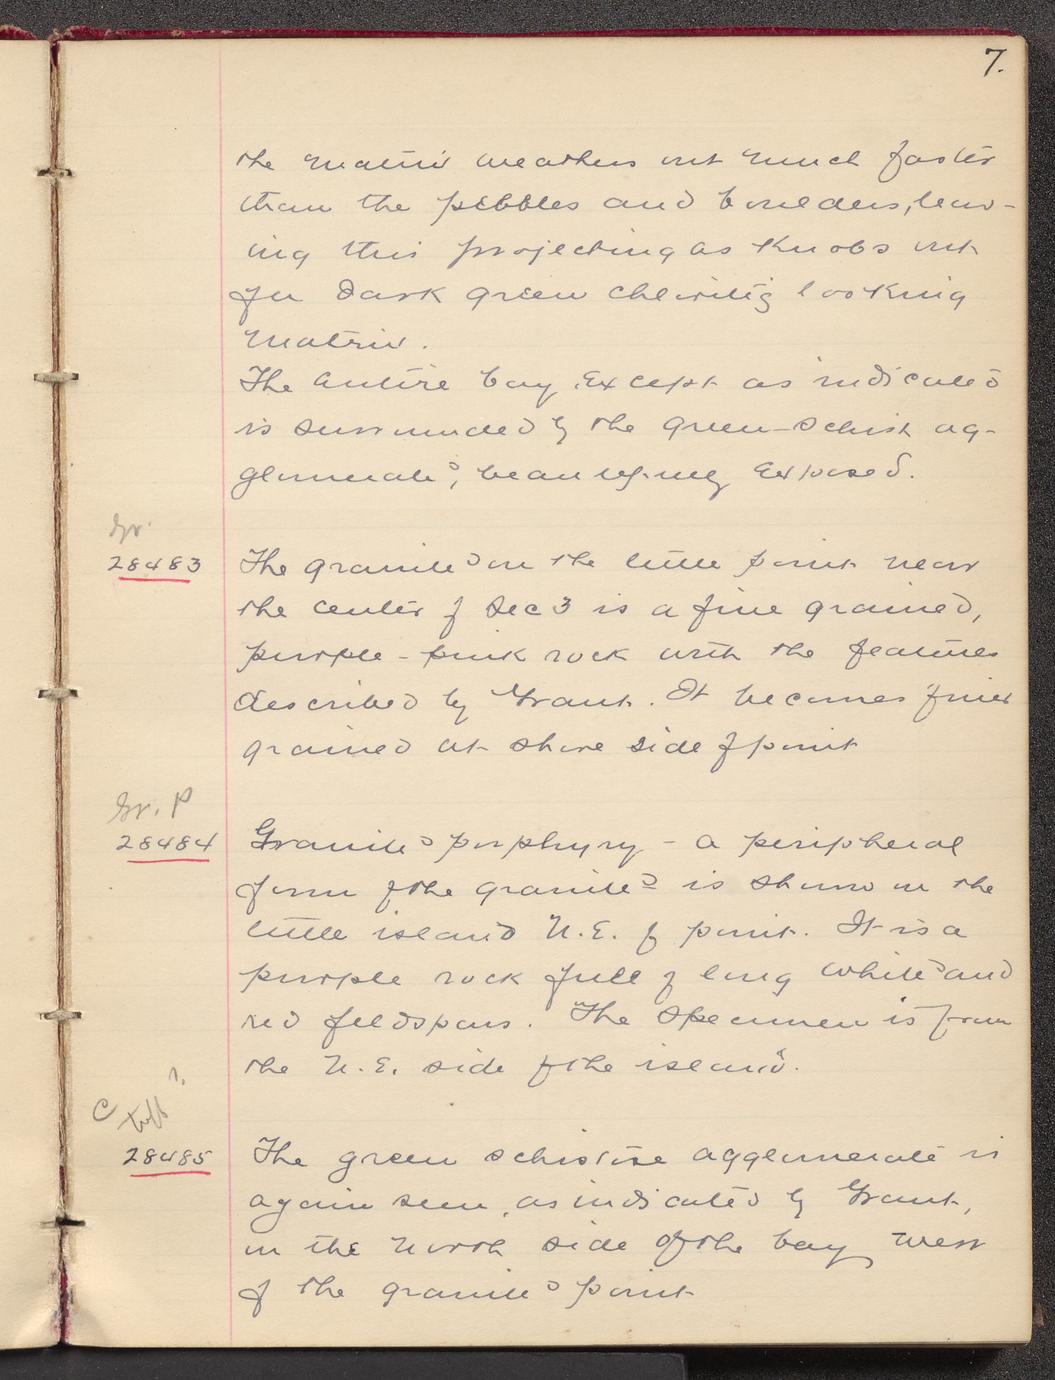 7.
the matrix weathers out much faster
than the pebbles and boulders, leav-
ing this projecting as knobs out
of a dark green chloritic looking
matrix.
The entire bay except as indicated
is surrounded by the green-schist ag-
glomerate, beautifully exposed.
Gr.
28483 The granite on the little point near
the center of Sec 3 is a fine grained,
purple-pink rock with the features
described by Grant. It becomes finer
grained at shore side of point
Gr. P
28484 Granite porphyry - a peripheral
form of the granite is shown on the
little island N.E. of point. It is a
purple rock full of long white and
red feldspars. The specimen is from
the N.E. side of the island.
C tuff ?
28485 The green schistose agglomerate is
again seen, as indicated by Grant,
on the north side of the bay west
of the granite point